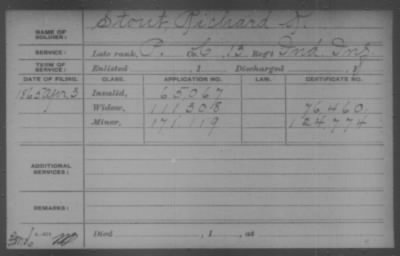 NAME OF SOLDIER: Stout, Richard D.
SERVICE: Late rank, P. Co. 13 Reg't Ind Inf
TERM OF SERVICE: Enlisted , 1 Discharged , 1
DATE OF FILING. CLASS. APPLICATION NO. LAW. CERTIFICATE NO.
1865 Apr 3 Invalid, 65067
Widow, 111308 76,460
Minor, 171119 124,774
ADDITIONAL SERVICES:
REMARKS:
Died , 1 , at